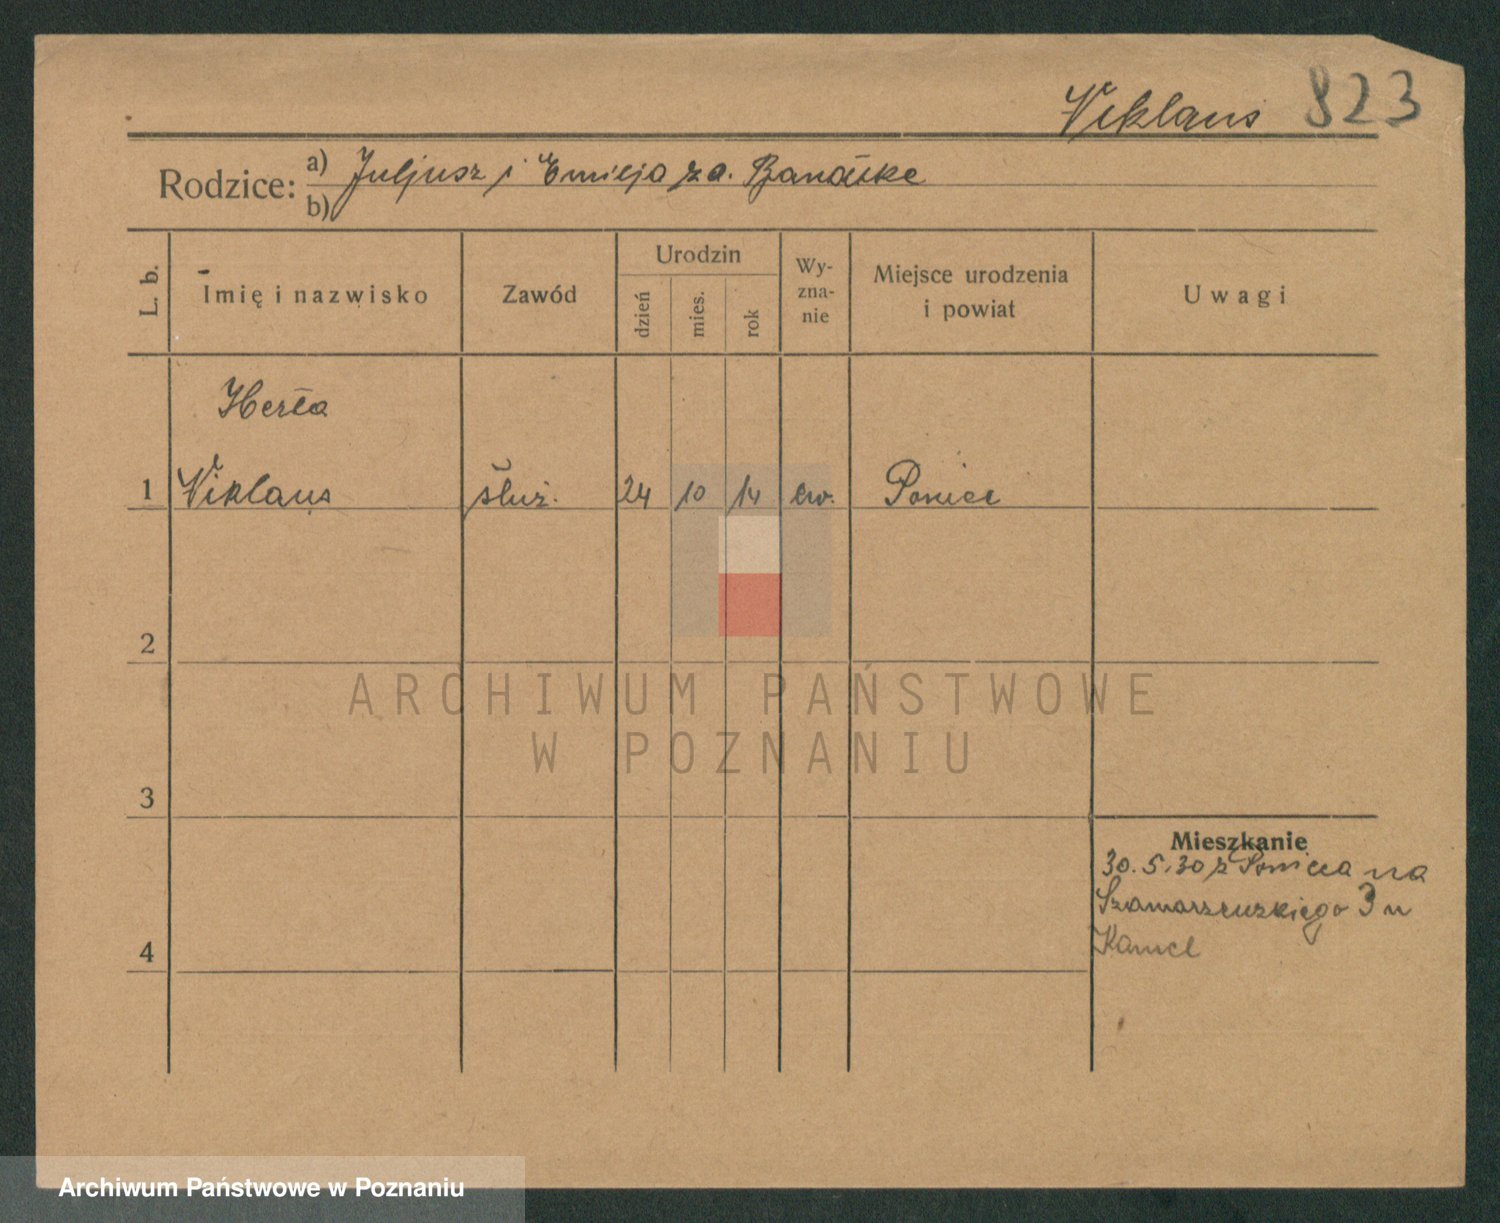 Niklaus 823
Rodzice: a) Juljusz i Emilja za. Bandtke
b)
L. b.
Imię i nazwisko
Zawód
Urodzin
dzień
mies.
rok
Wy-
zna-
nie
Miejsce urodzenia
i powiat
Uwagi
Herta
1 Niklaus służ. 24 10 14 ew. Poniec
2
ARCHIWUM PAŃSTWOWE
W POZNANIU
3
Mieszkanie
30.5.30 z Ponieca na
Szamarzewskiego 3 u
4
Archiwum Państwowe w Poznaniu